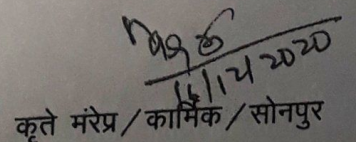 16/12/2020
कृते मंरेप्र/कार्मिक/सोनपुर